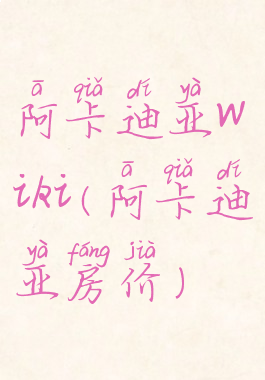 ā qiǎ dí yà
阿卡迪亚w
ā qiǎ dí
iki(阿卡迪
yà fáng jià
亚房价)